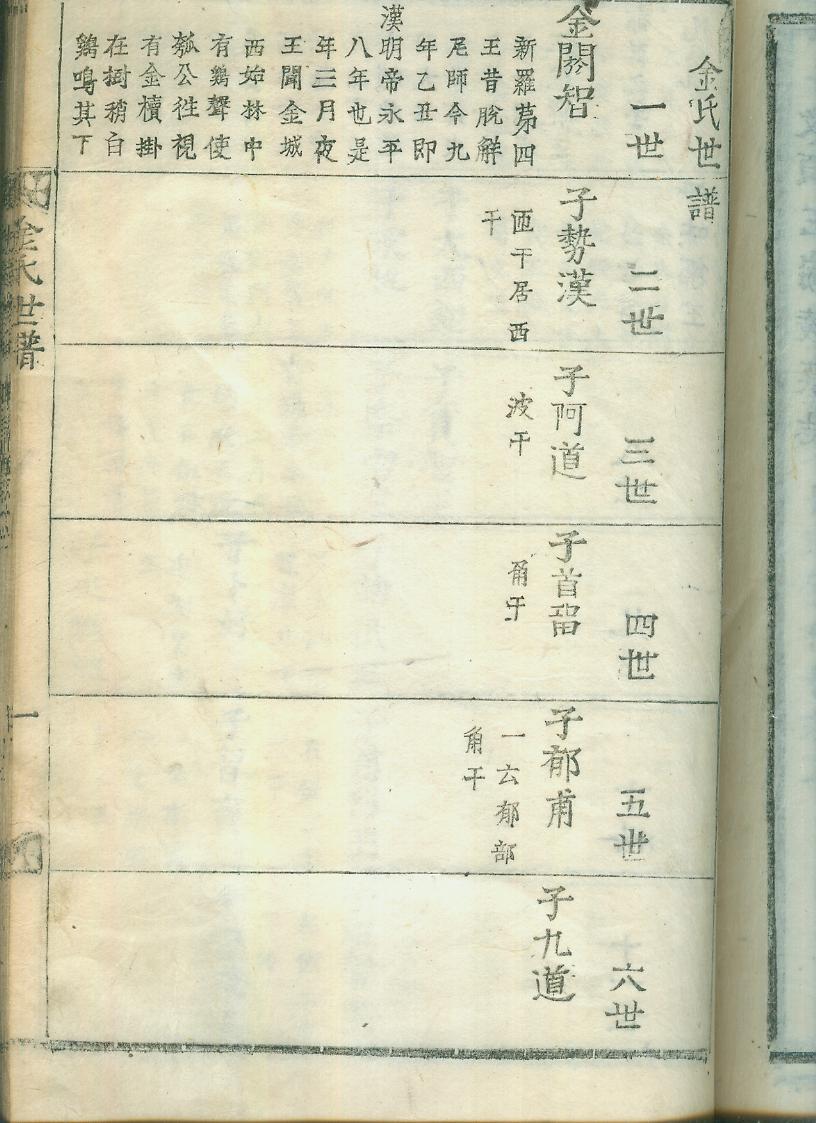 金氏世譜
一世
金閼智
新羅苐四
王昔脫解
尼師今九
年乙丑即
漢明帝永平
八年也是
年三月夜
王聞金城
西始林中
有鷄聲使
瓠公徃視
有金櫝掛
在樹梢白
鷄鳴其下
二世
子勢漢
迊干居西
干
三世
子阿道
波干
四世
子首留
角干
五世
子郁甫
一云郁部
角干
六世
子九道
金氏世譜
一